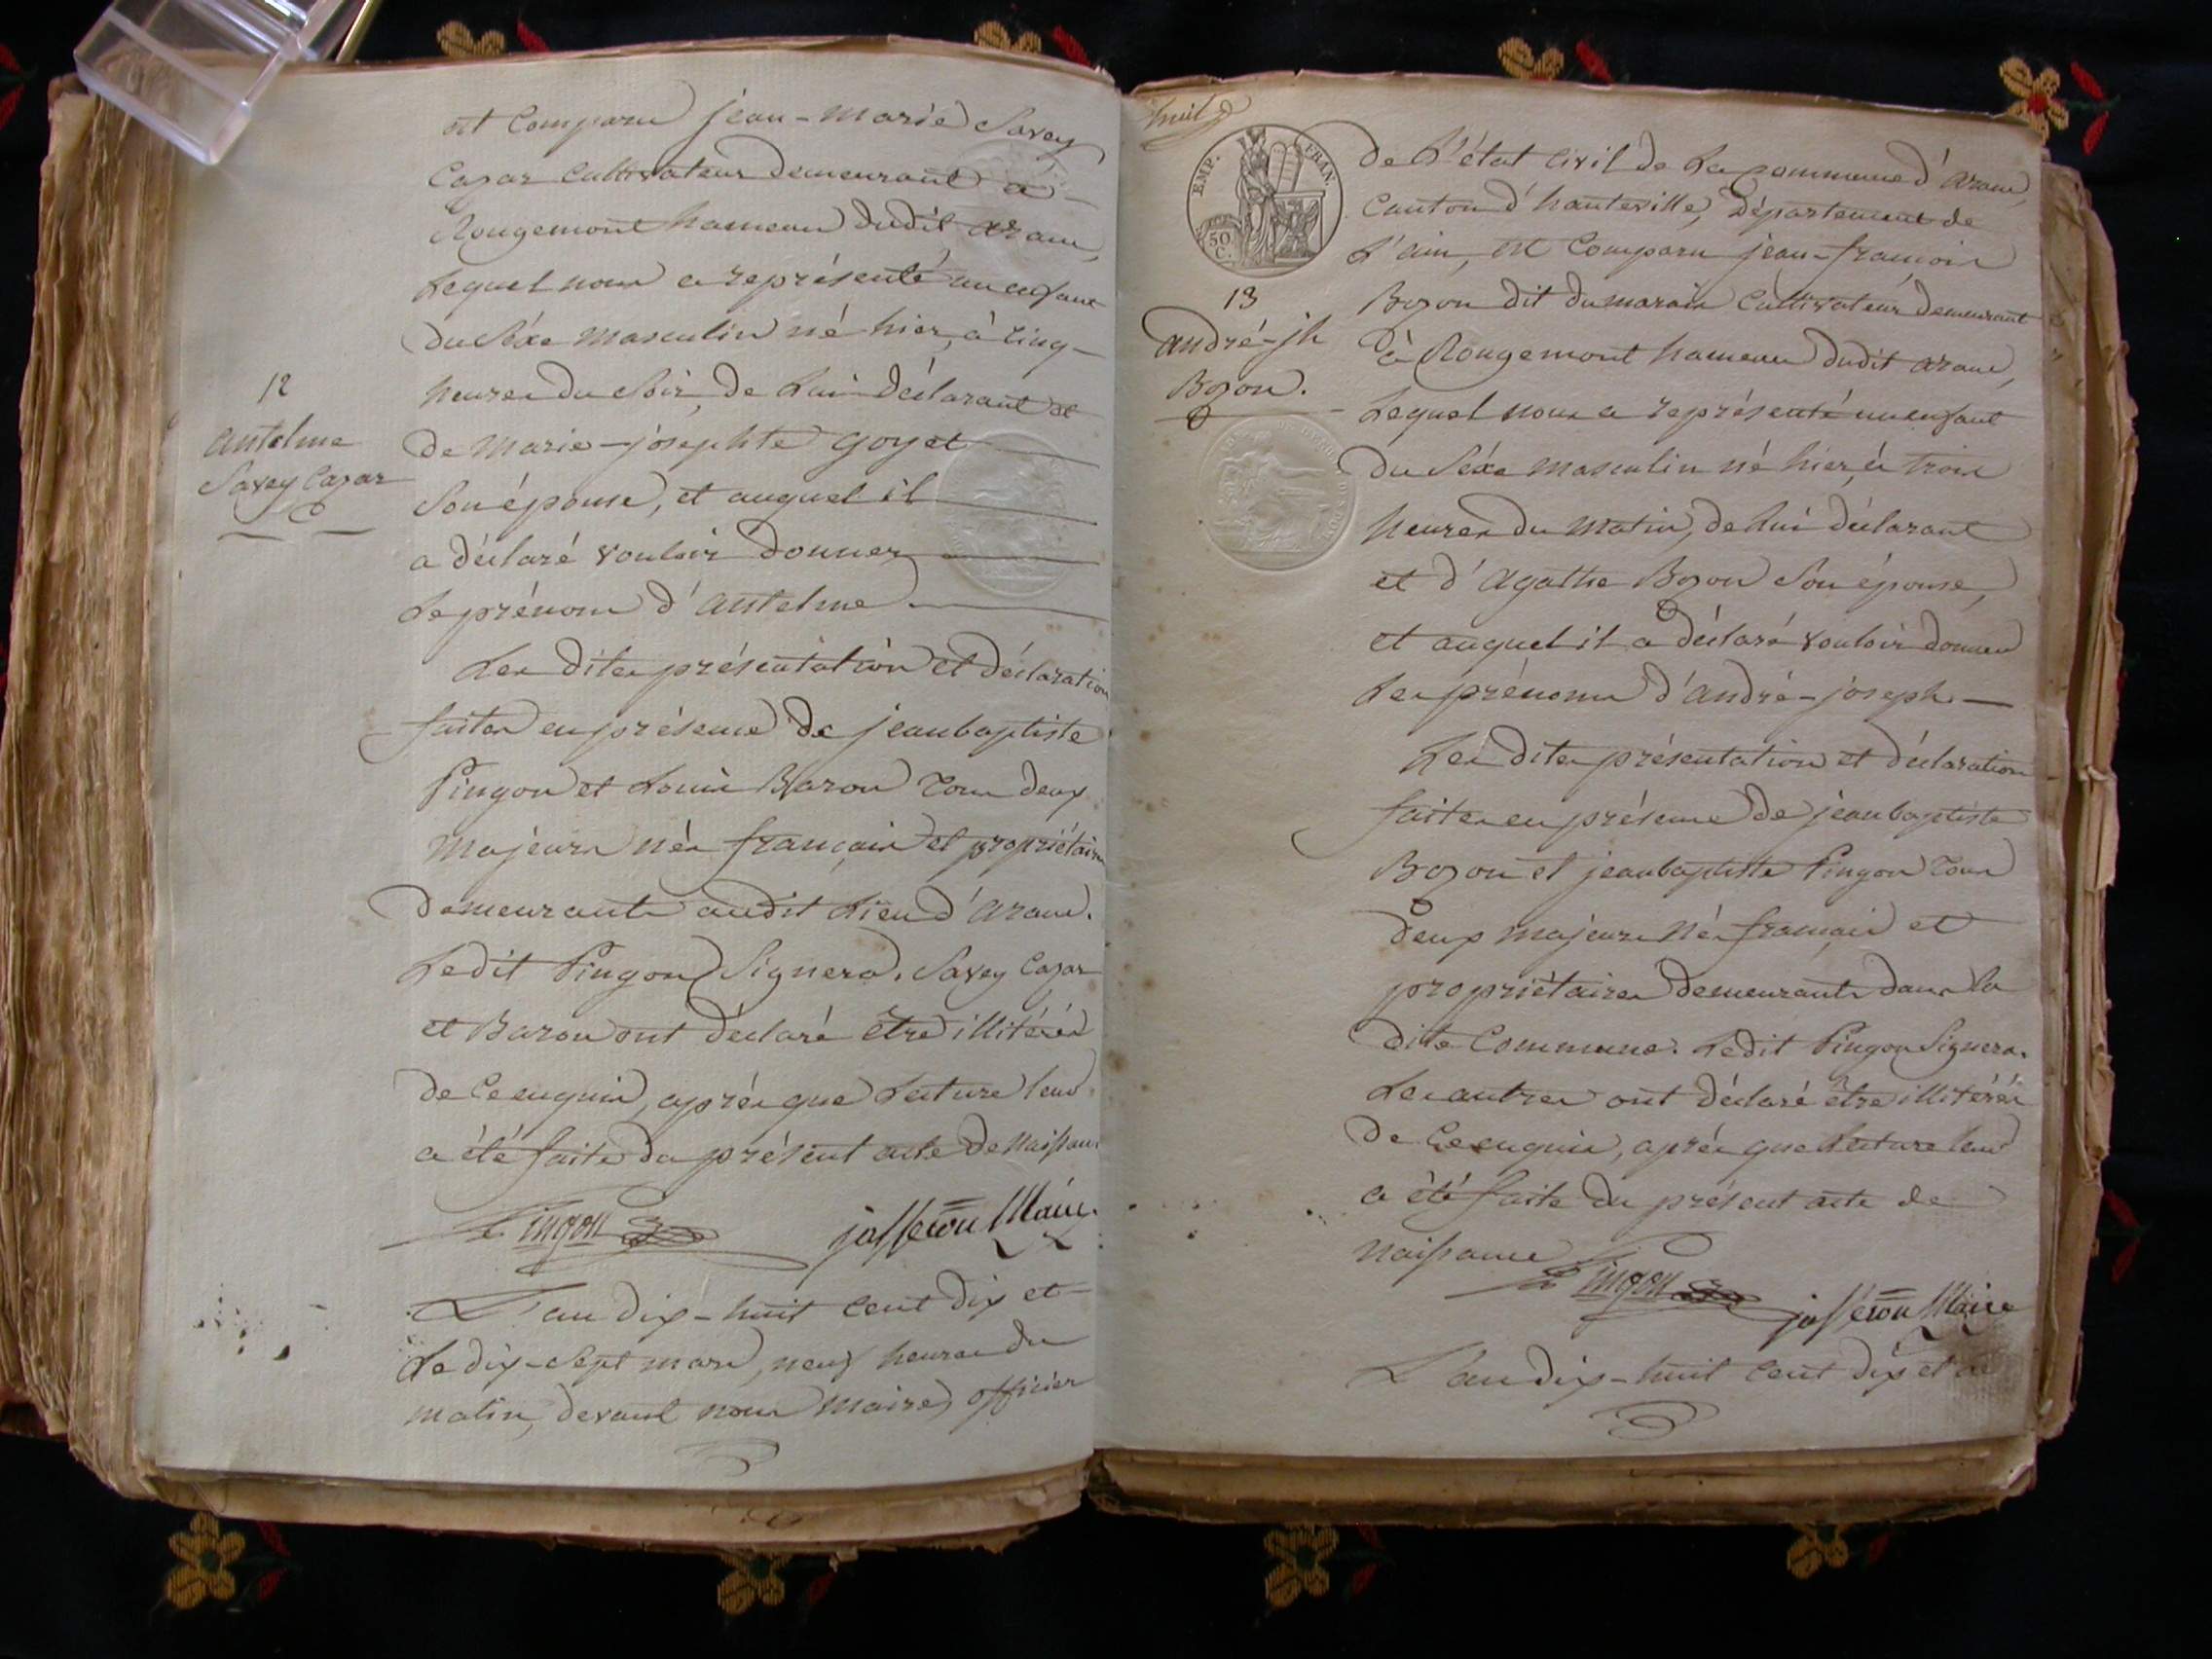 ont Comparu jean-marie Savey
Cazar Cultivateur demeurant à
Rougemont hameau dudit aranc,
Lequel nous a représenté un enfant
du Séxe masculin né hier, à cinq
heures du Soir, de Lui déclarant et
12
antelme
Savey Cazar
de Marie-josephte goyet
Son épouse, et auquel il
a déclaré vouloir donner
Le prénom d'antelme.
Les dites présentation et déclaration
faites en présence de jean baptiste
Pingon et Louis Baron tous deux
majeurs nés français et propriétaires
demeurants audit Lieu d'aranc.
Ledit Pingon Signera. Savey Cazar
et Baron ont déclaré être illitérés
de Ce enquis, après que Lecture leur
a été faite du présent acte de Naissance
Pingon josseron Maire.
L'an dix-huit cent dix et
Le dix-sept mars, neuf heures du
matin, devant nous maire, officier
huit
EMP. FRAN.
50 C.
de L'état Civil de La commune d'aranc,
Canton d'hauteville, Département de
L'ain, est Comparu jean-françois
13
andré-jh
Bozon.
Bozon dit dumarais Cultivateur demeurant
à Rougemont hameau dudit aranc,
Lequel nous a représenté un enfant
du Séxe masculin né hier, à trois
heures du matin, de Lui déclarant
et d'agathe Bozon Son épouse,
et auquel il a déclaré vouloir donner
Les prénoms d'andré-joseph.
Les dites présentation et déclaration
faites en présence de jean baptiste
Bozon et jean baptiste Pingon tous
deux majeurs Nés français et
propriétaires demeurants dans la
dite Commune. Ledit Pingon Signera.
Les autres ont déclaré être illitérés
de Ce enquis, après que Lecture leur
a été faite du présent acte de
naissance
Pingon josseron Maire
L'an dix-huit cent dix et le